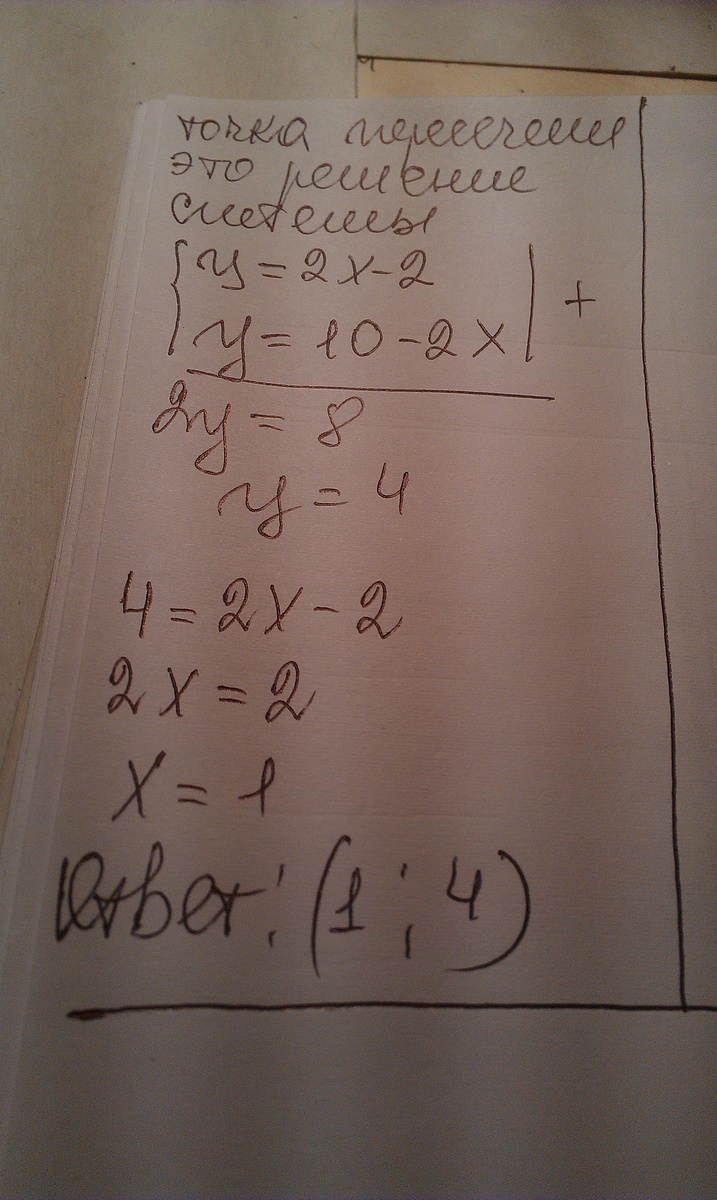 точка пересечения
это решение
системы
{ y = 2x - 2
y = 10 - 2x | +
2y = 8
y = 4
4 = 2x - 2
2x = 2
x = 1
Ответ: (1 ; 4)